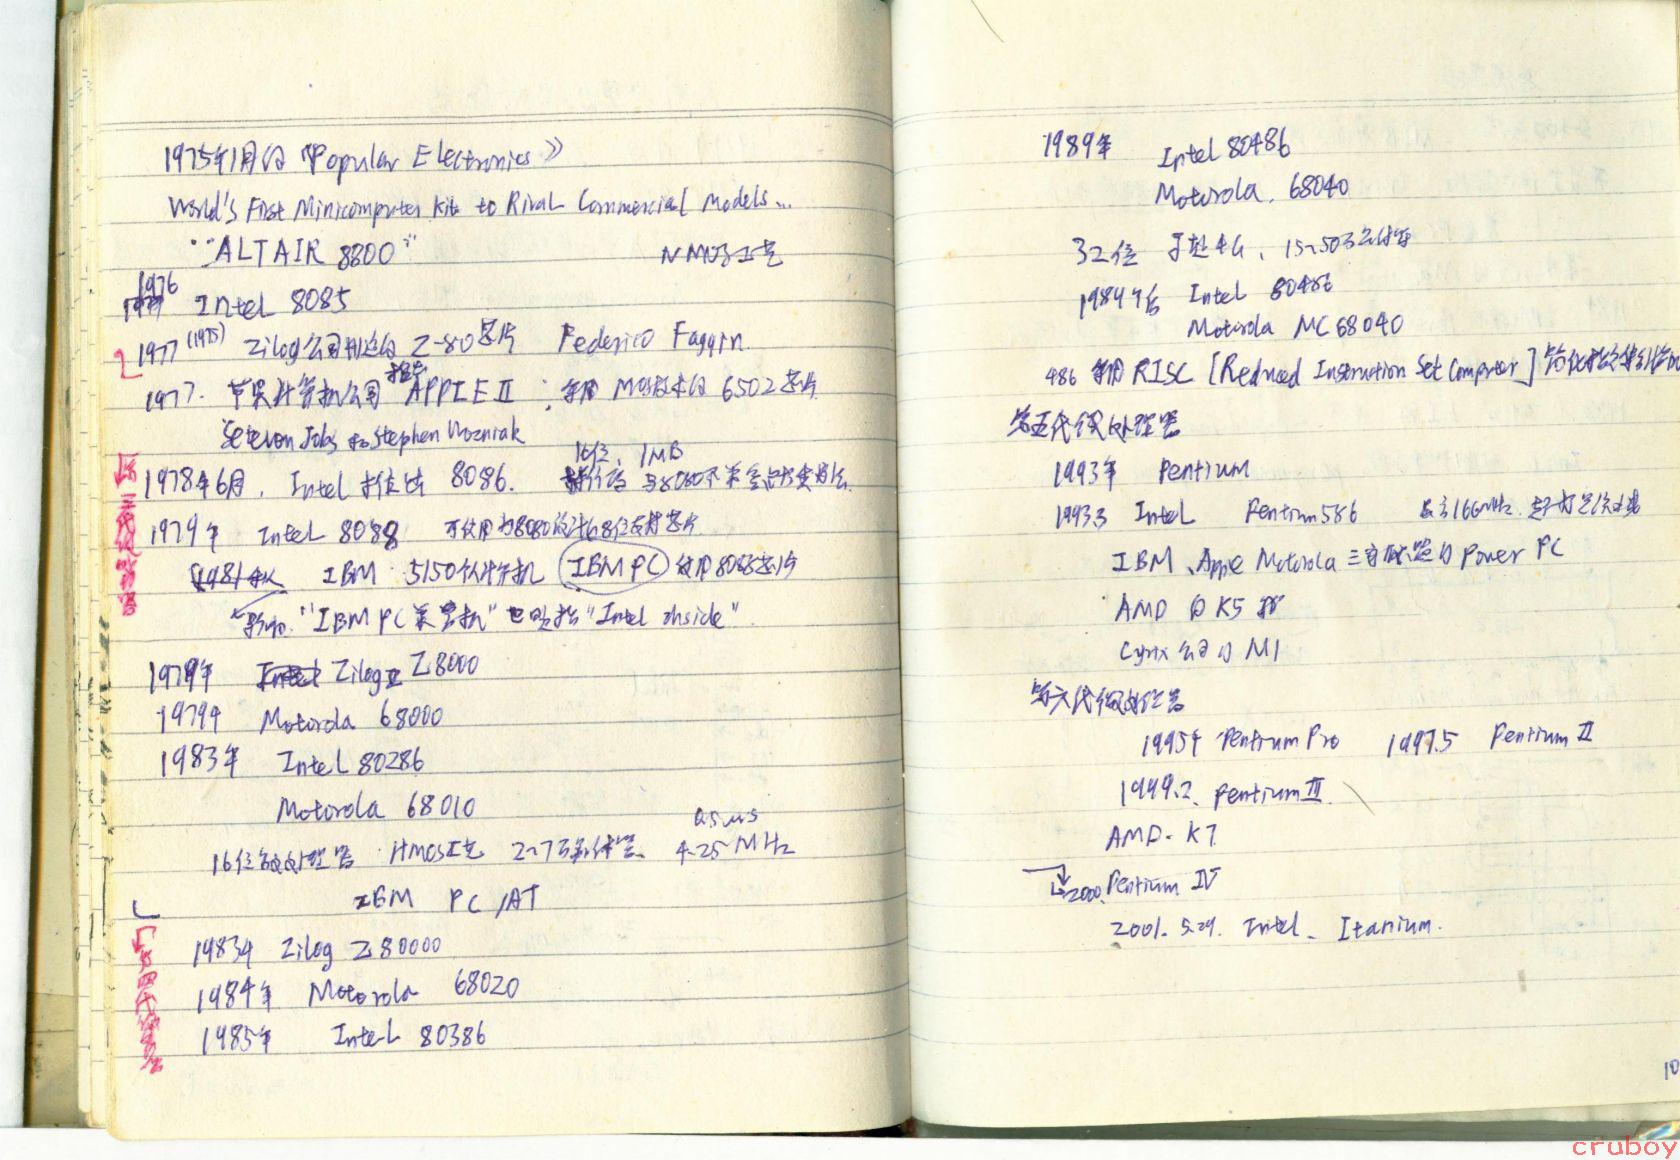 1975年1月的《Popular Electronics》
World's First Minicomputer Kit to Rival Commercial Models...
"ALTAIR 8800" NMOS工艺
1976
Intel 8085
1977 (1975) Zilog公司制造的 Z-80芯片 Federico Faggin.
1977. 苹果计算机公司推出 APPLE II : 采用 MOS技术的 6502芯片
Steven Jobs 和 Stephen Wozniak
16位, 1MB
1978年6月. Intel 推出 8086. 与8080不兼容
第三代微处理器
1979年 Intel 8088 可使用为8080设计的8位支持芯片
1981年 IBM 5150个人计算机 IBM PC 使用8088芯片
影响. "IBM PC兼容机" 也是指 "Intel inside".
1979年 Zilog Z8000
1979年 Motorola 68000
1983年 Intel 80286
Motorola 68010
0.5us
16位微处理器 HMOS工艺 2~7万晶体管、 4-25 MHz
IBM PC/AT
第四代微处理器
1983年 Zilog Z80000
1984年 Motorola 68020
1985年 Intel 80386
1989年 Intel 80486
Motorola. 68040
32位 15~50万晶体管
1989年后 Intel 80486
Motorola MC68040
486 采用 RISC [Reduced Instruction Set Computer] 简化指令集
第五代微处理器
1993年 Pentium
1993.3 Intel Pentium 586 最高166MHz.
IBM、Apple Motorola 三家联盟的 Power PC
AMD 的 K5
Cyrix 公司的 M1
第六代微处理器
1995年 Pentium Pro 1997.5 Pentium II
1999.2. Pentium III.
AMD. K7
2000. Pentium IV
2001. 5.29. Intel. Itanium.
10
cruboy